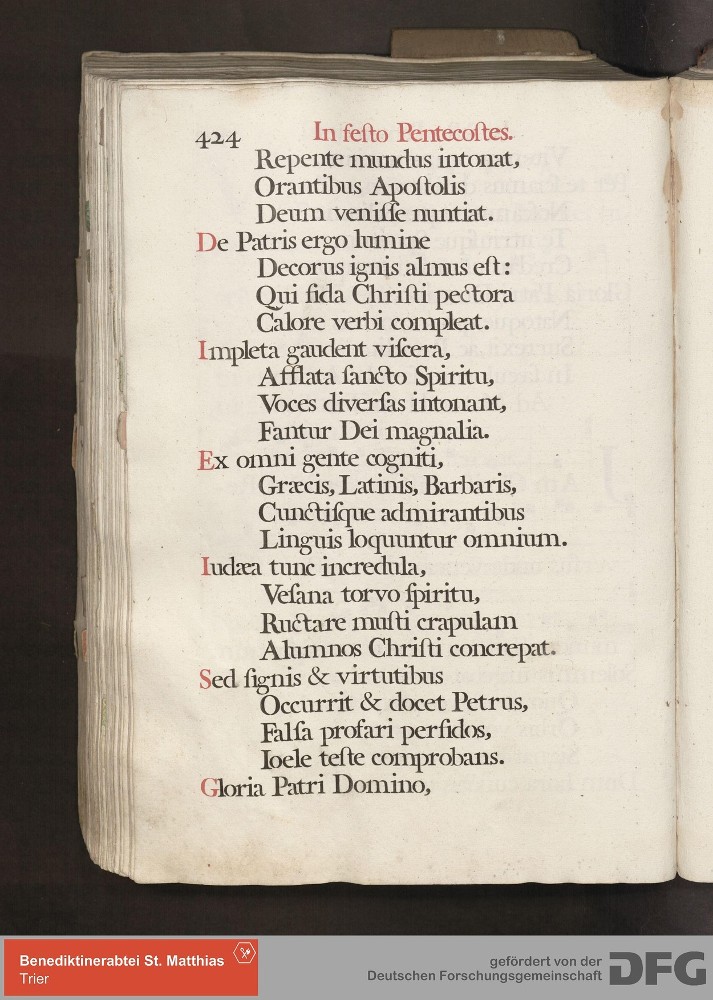 424 In feſto Pentecoſtes.
Repente mundus intonat,
Orantibus Apoſtolis
Deum veniſſe nuntiat.
De Patris ergo lumine
Decorus ignis almus eſt:
Qui fida Chriſti pectora
Calore verbi compleat.
Impleta gaudent viſcera,
Afflata ſancto Spiritu,
Voces diverſas intonant,
Fantur Dei magnalia.
Ex omni gente cogniti,
Græcis, Latinis, Barbaris,
Cunctiſque admirantibus
Linguis loquuntur omnium.
Iudæa tunc incredula,
Veſana torvo ſpiritu,
Ructare muſti crapulam
Alumnos Chriſti concrepat.
Sed ſignis & virtutibus
Occurrit & docet Petrus,
Falſa profari perfidos,
Ioele teſte comprobans.
Gloria Patri Domino,
Benediktinerabtei St. Matthias
Trier
gefördert von der
Deutschen Forschungsgemeinschaft
DFG